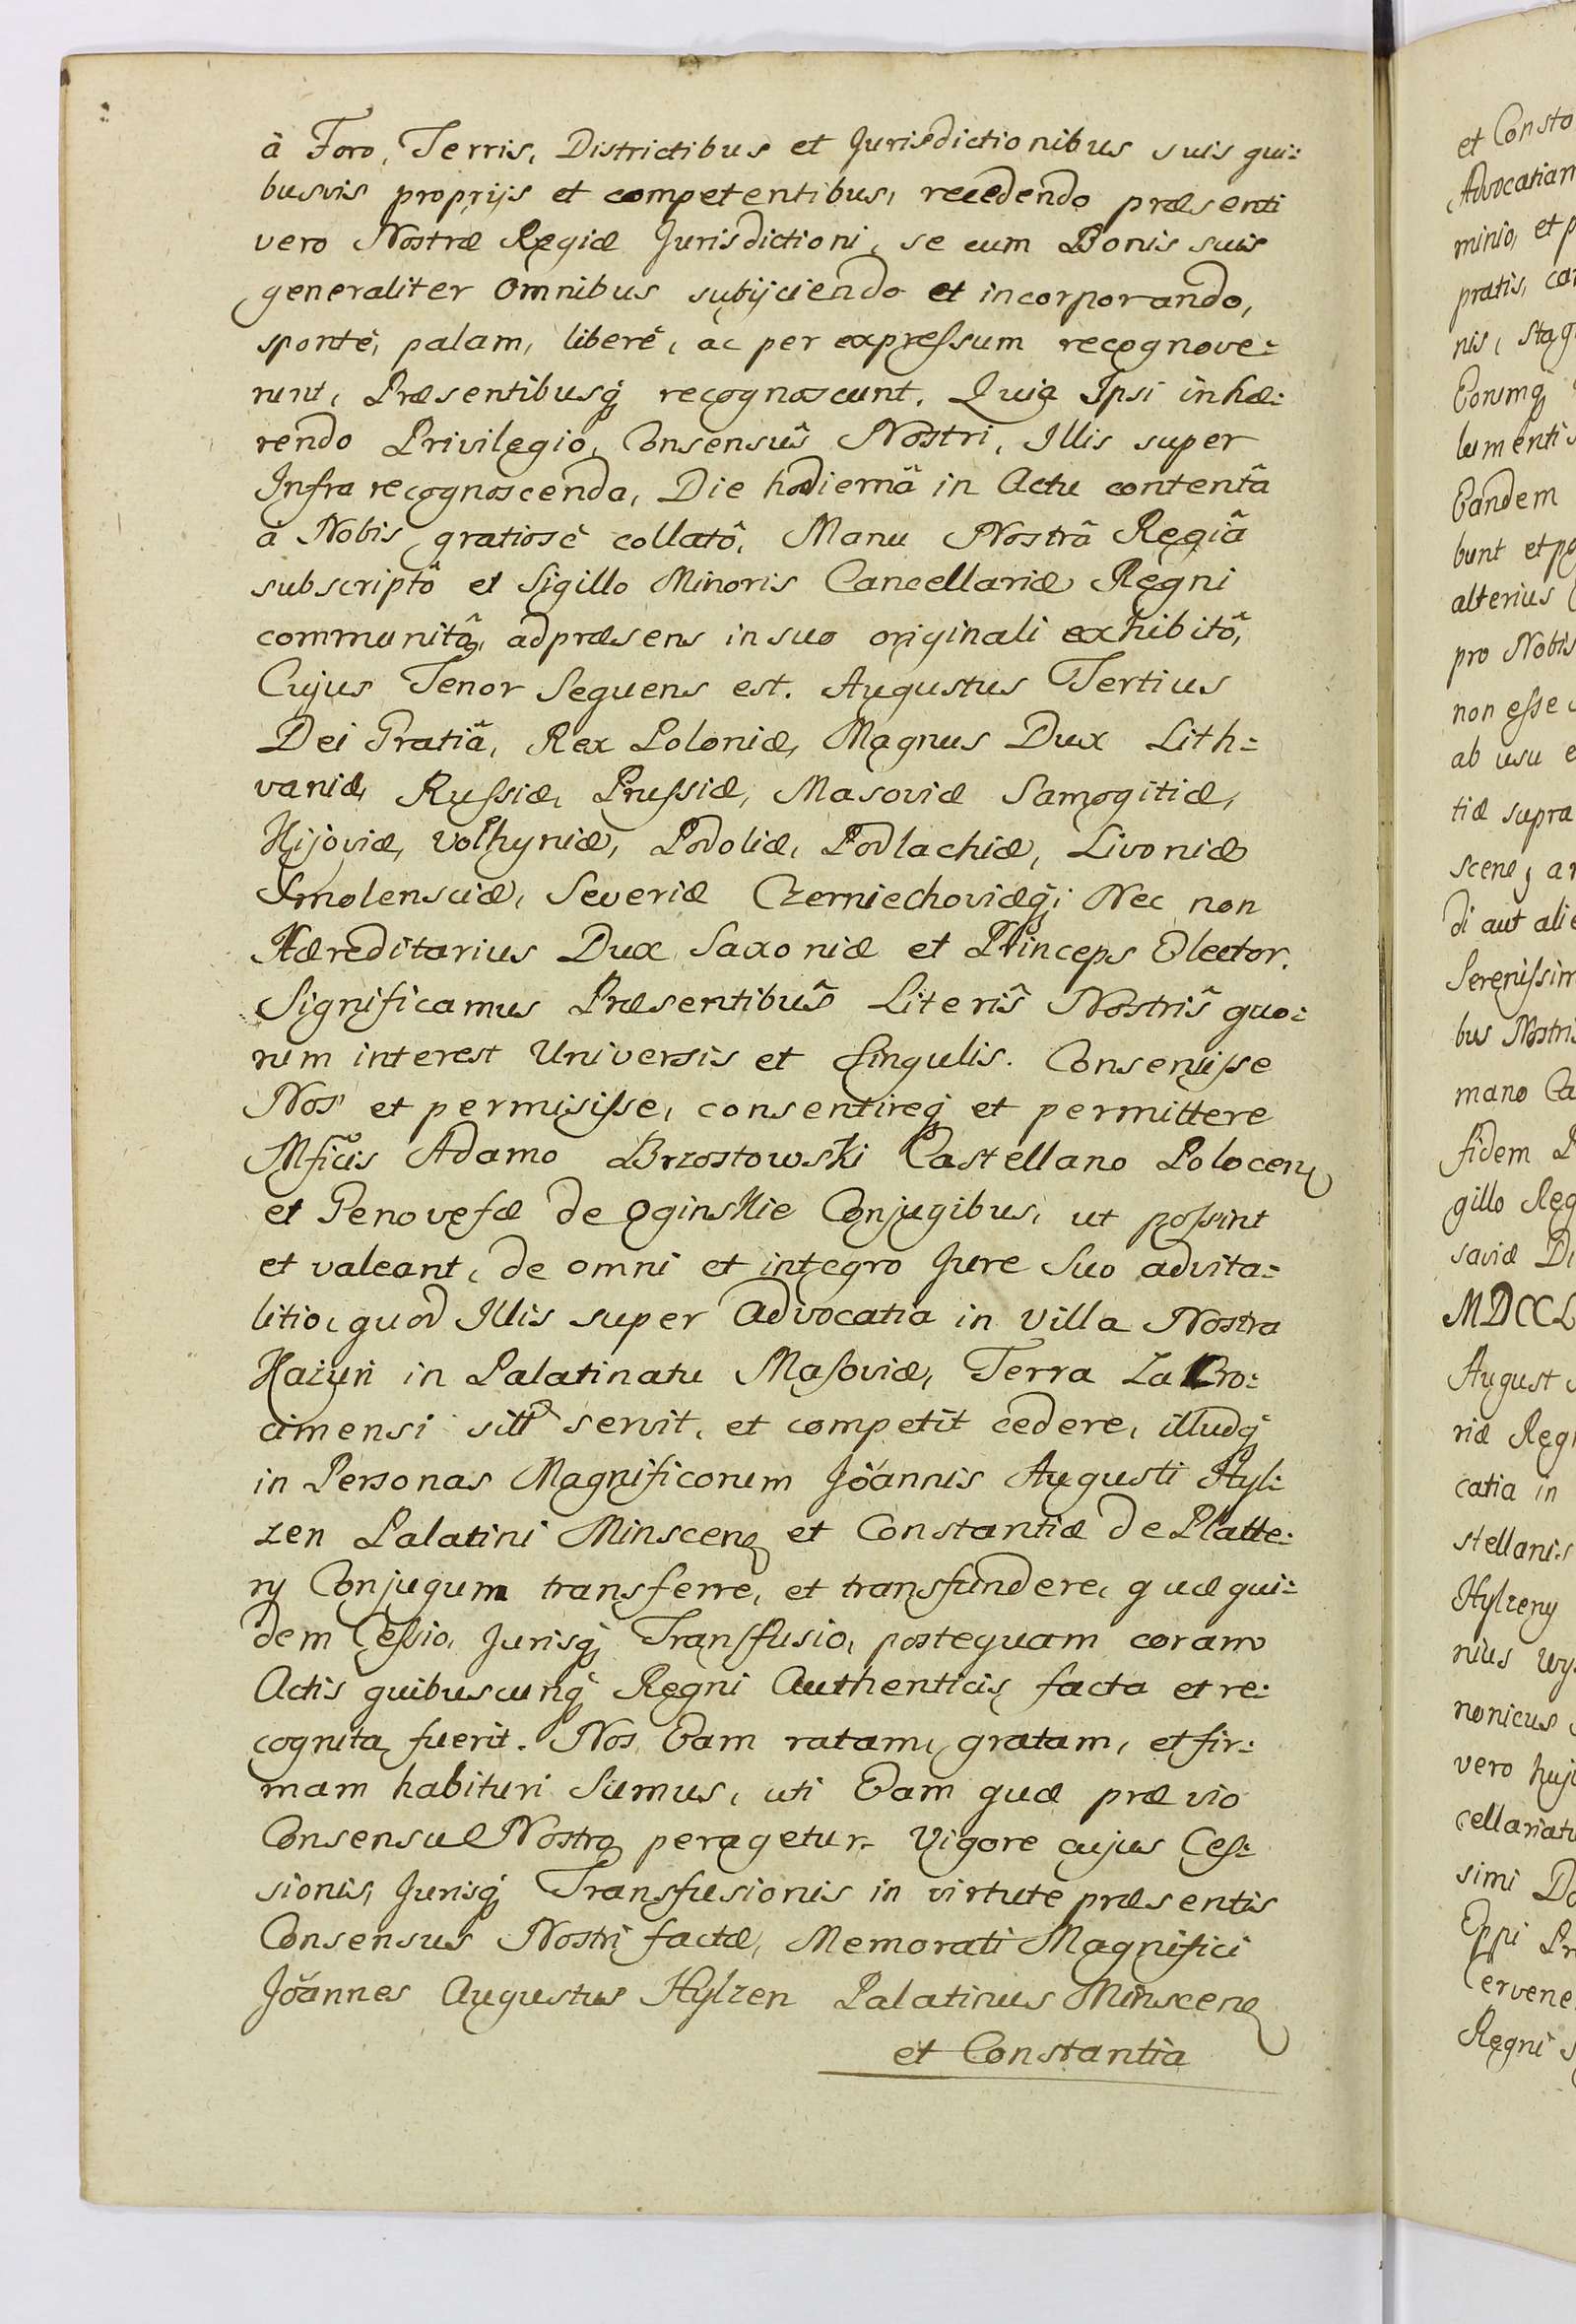 à Foro, Terris, Districtibus et Jurisdictionibus suis qui:
busvis proprijs et competentibus, recedendo præsenti
vero Nostræ Regiæ Jurisdictioni, se cum Bonis suis
generaliter Omnibus subijciendo et incorporando,
spontè, palam, liberè, ac per expressum recognove:
runt, Præsentibusq́ recognoscunt. Quia Ipsi inhæ:
rendo Privilegio, Consensûs Nostri, Illis super
Infra recognoscenda, Die hodiernâ in Actu contentâ
à Nobis gratiosè collatô, Manu Nostrâ Regiâ
subscriptô et Sigillo Minoris Cancellariæ Regni
communitô, ad præsens in suo originali exhibitô,
Cujus Tenor Sequens est. Augustus Tertius
Dei Gratiâ, Rex Poloniæ, Magnus Dux Lith=
vaniæ, Russiæ, Prussiæ, Masoviæ Samogitiæ,
Kijoviæ, Volhyniæ, Podoliæ, Podlachiæ, Livoniæ
Smolensciæ, Severiæ Czerniechoviæq́; Nec non
Hæreditarius Dux Saxoniæ et Princeps Elector.
Significamus Præsentibûs Literîs Nostrîs quo:
rum interest Universis et Singulis. Consensisse
Nos et permisisse, consentireq́ et permittere
Mficis Adamo Brzostowski Castellano Polocen
et Genovefæ de Oginskie Conjugibus, ut possint
et valeant, de omni et integro Jure Suo advita=
litio, quod Illis super Advocatia in Villa Nostra
Kazuń in Palatinatu Masoviæ, Terra Zakro:
cimensi sitt servit, et competit cedere, illudq́
in Personas Magnificorum Joannis Augusti Hyl:
zen Palatini Minscen et Constantiæ de Platte:
ry Conjugum transferre, et transfundere, quæ qui:
dem Cessio, Jurisq́ Transfusio, postequam coram
Actis quibuscunq́ Regni Authenticis facta et re:
cognita fuerit. Nos Eam ratam, gratam, et fir:
mam habituri Sumus, uti Eam quæ prævio
Consensu Nostro peragetur. Vigore cujus Ces:
sionis, Jurisq́ Transfusionis in virtute præsentis
Consensus Nostri factæ, Memorati Magnifici
Joannes Augustus Hylzen Palatinus Minscen
et Constantia
et Consta
Advocatiam
minio, et p
pratis, ca
nis, stag
Eorumq́
lumentis
Eandem
bunt et po
alterius
pro Nobis
non esse
ab usu e
tiæ supra
scene, a
di aut alie
Serenissim
bus Nostri
mano Ca
fidem P
gillo Reg
saviæ Di
MDCCL
August
riæ Reg
catia in
stellanis
Hylzeny
nius Wy
nonicus
vero huj
cellariatu
simi Do
Eppi Pr
Cervene
Regni s